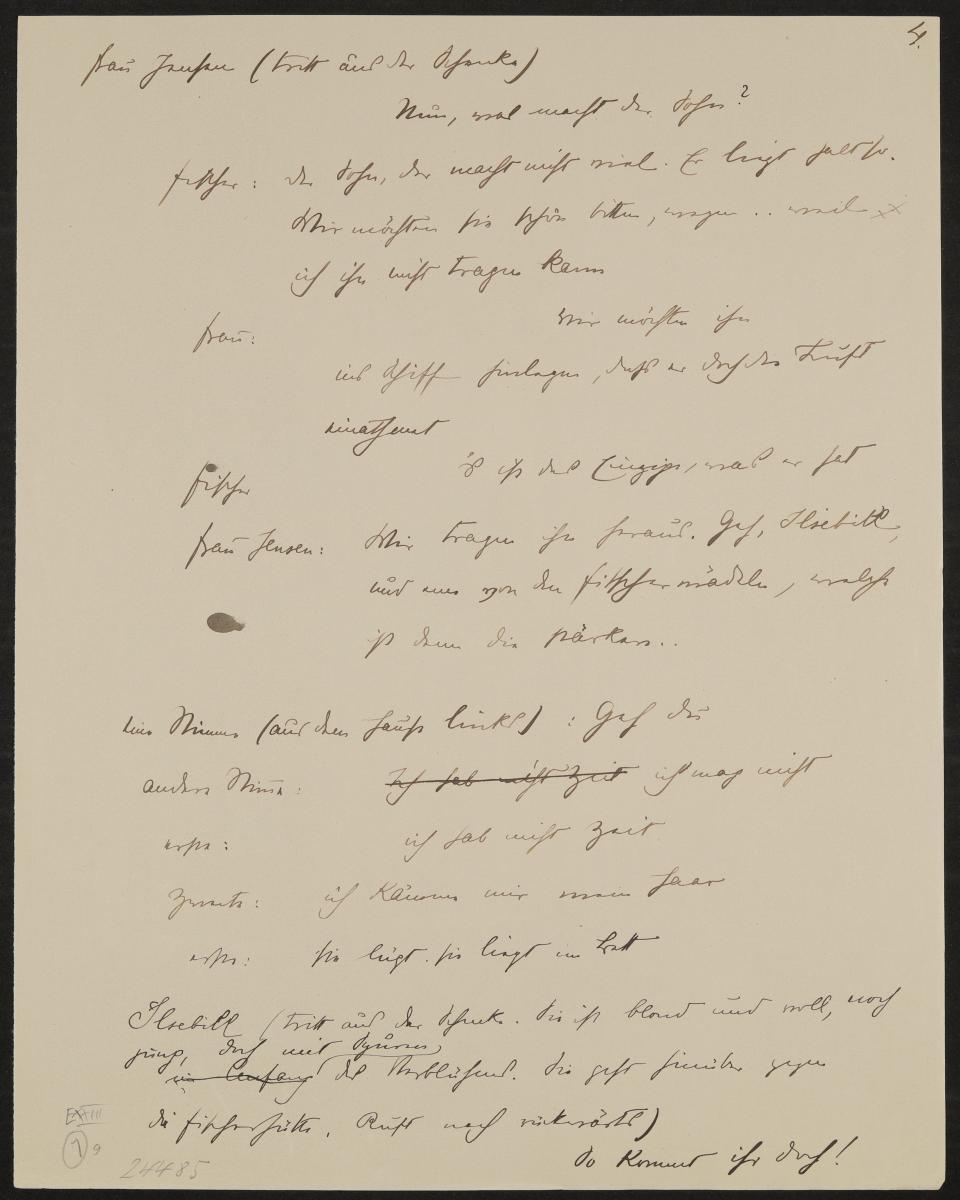 4.
Frau Jensen (tritt aus der Schenke)
Nun, was macht der Sohn?
Fischer: Der Sohn, der macht nicht viel. Er liegt halt so.
Wir möchten Sie schön bitten, wegen .. weil
ich ihn nicht tragen kann
Frau: Wir möchten ihn
ins Schiff hinlegen, dass er doch die Luft
einathmet
Fischer 's ist das Einzige, was er hat
Frau Jensen: Wir tragen ihn heraus. Geh, Ilsebill,
und eine von den Fischermädeln, welche
ist denn die stärkere..
Eine Stimme (aus dem Hause links) : Geh du
andere Stimme: Ich hab nicht Zeit ich mag nicht
erste: ich hab nicht Zeit
zweite: ich kämme mir mein Haar
erste: sie lügt. sie liegt im Bett
Ilsebill (tritt aus der Schenke. Sie ist blond und voll, noch
jung, doch mit Spuren
im Anfang des Verblühens. Sie geht hinüber gegen
die Fischerhütte. Ruft nach rückwärts)
So kommt ihr doch!
EXVIII
1 9
24485